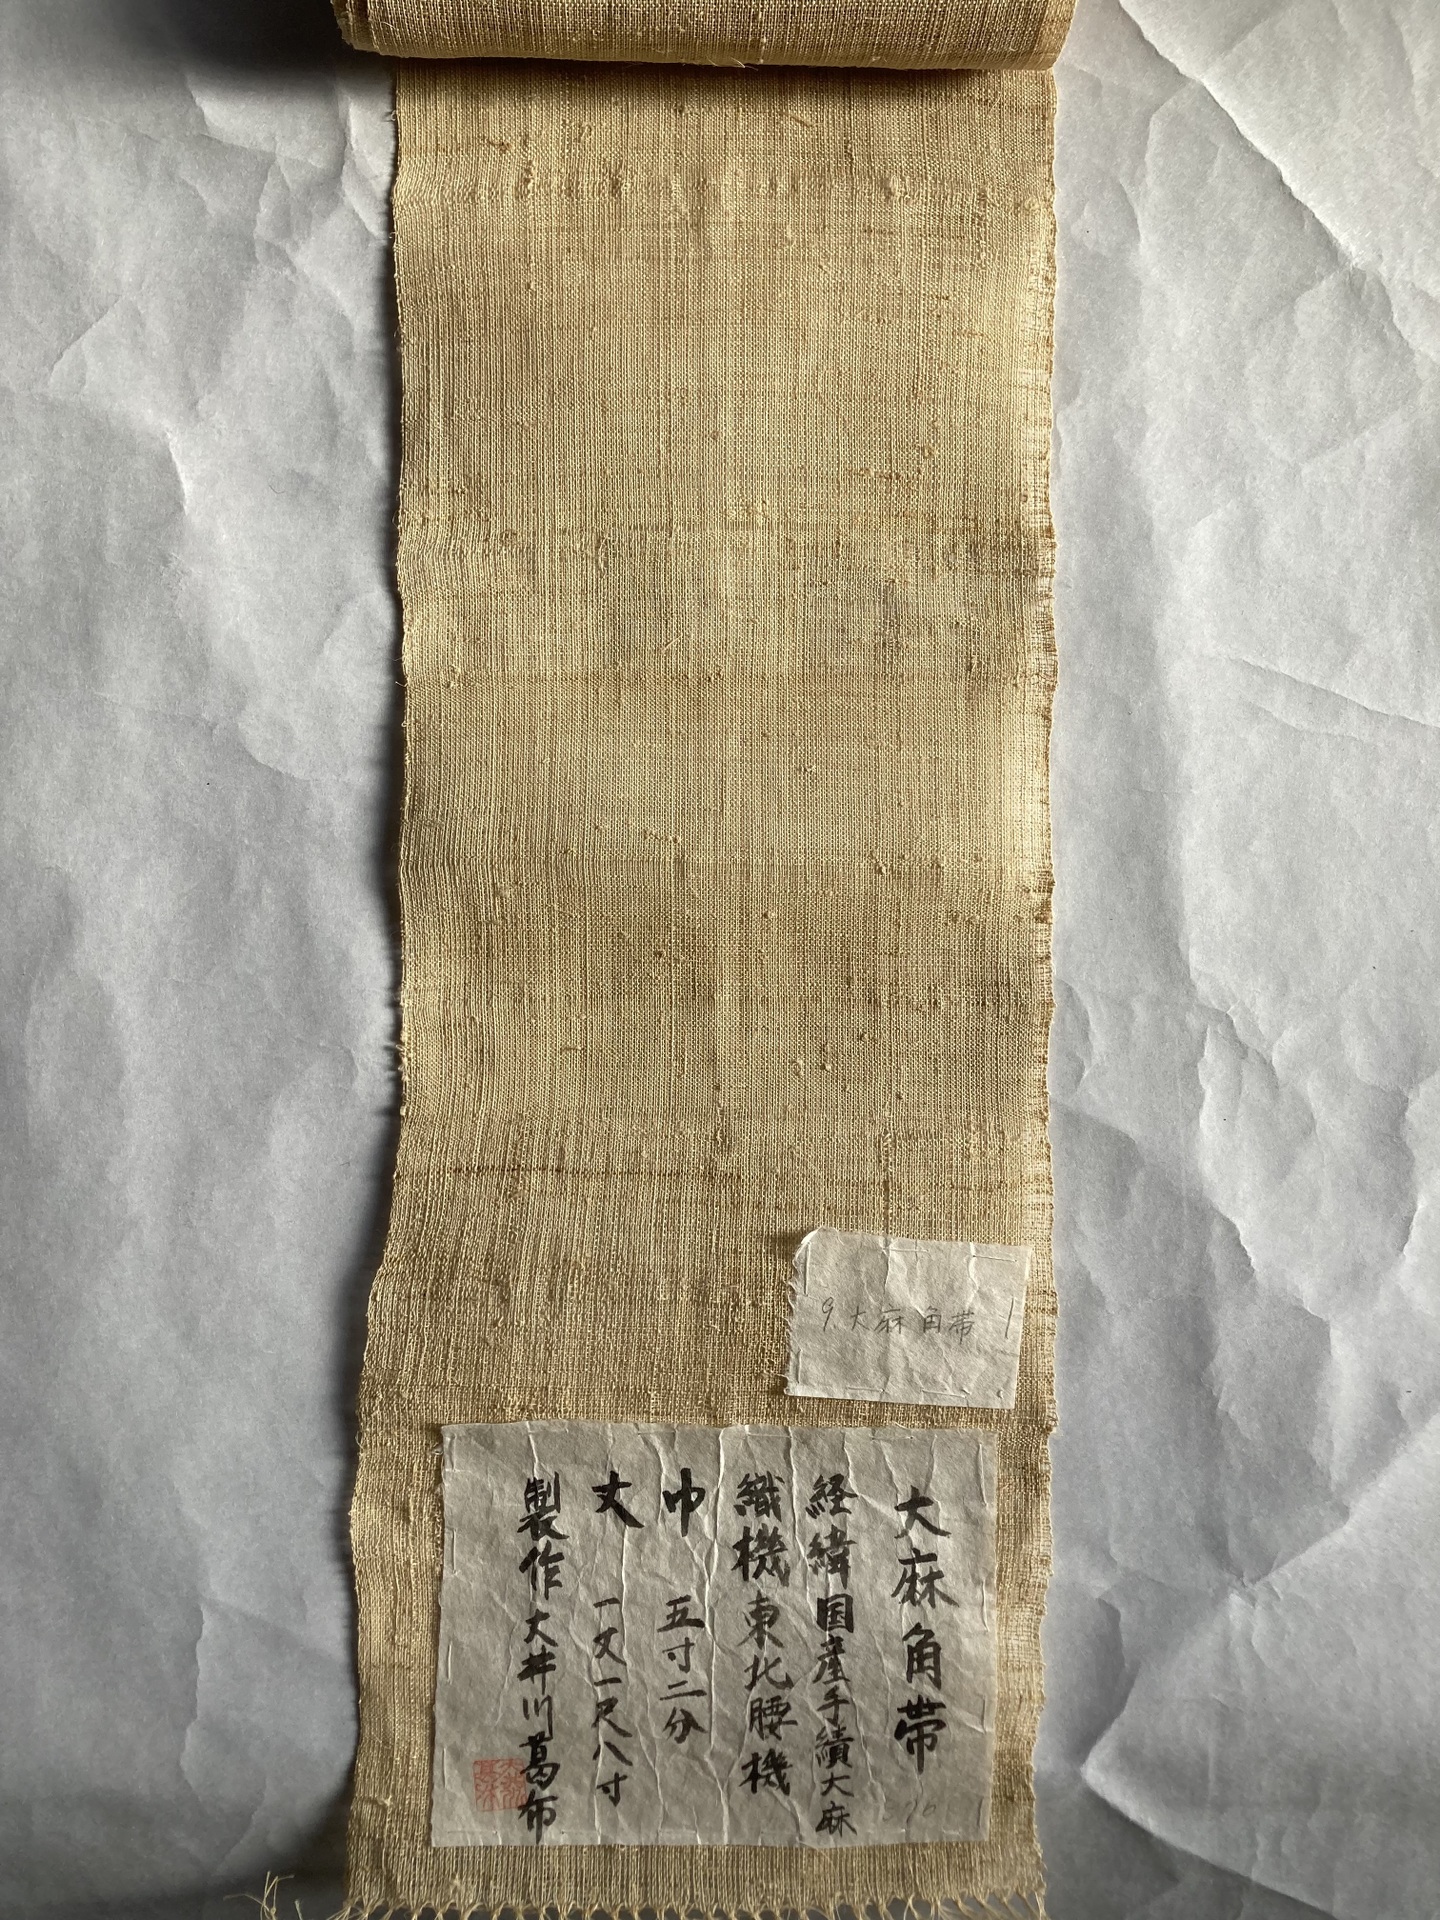 9.大麻角帯 1
大麻角帯
経緯国産手績大麻
織機東北腰機
巾 五寸二分
丈 一丈一尺八寸
製作大井川葛布